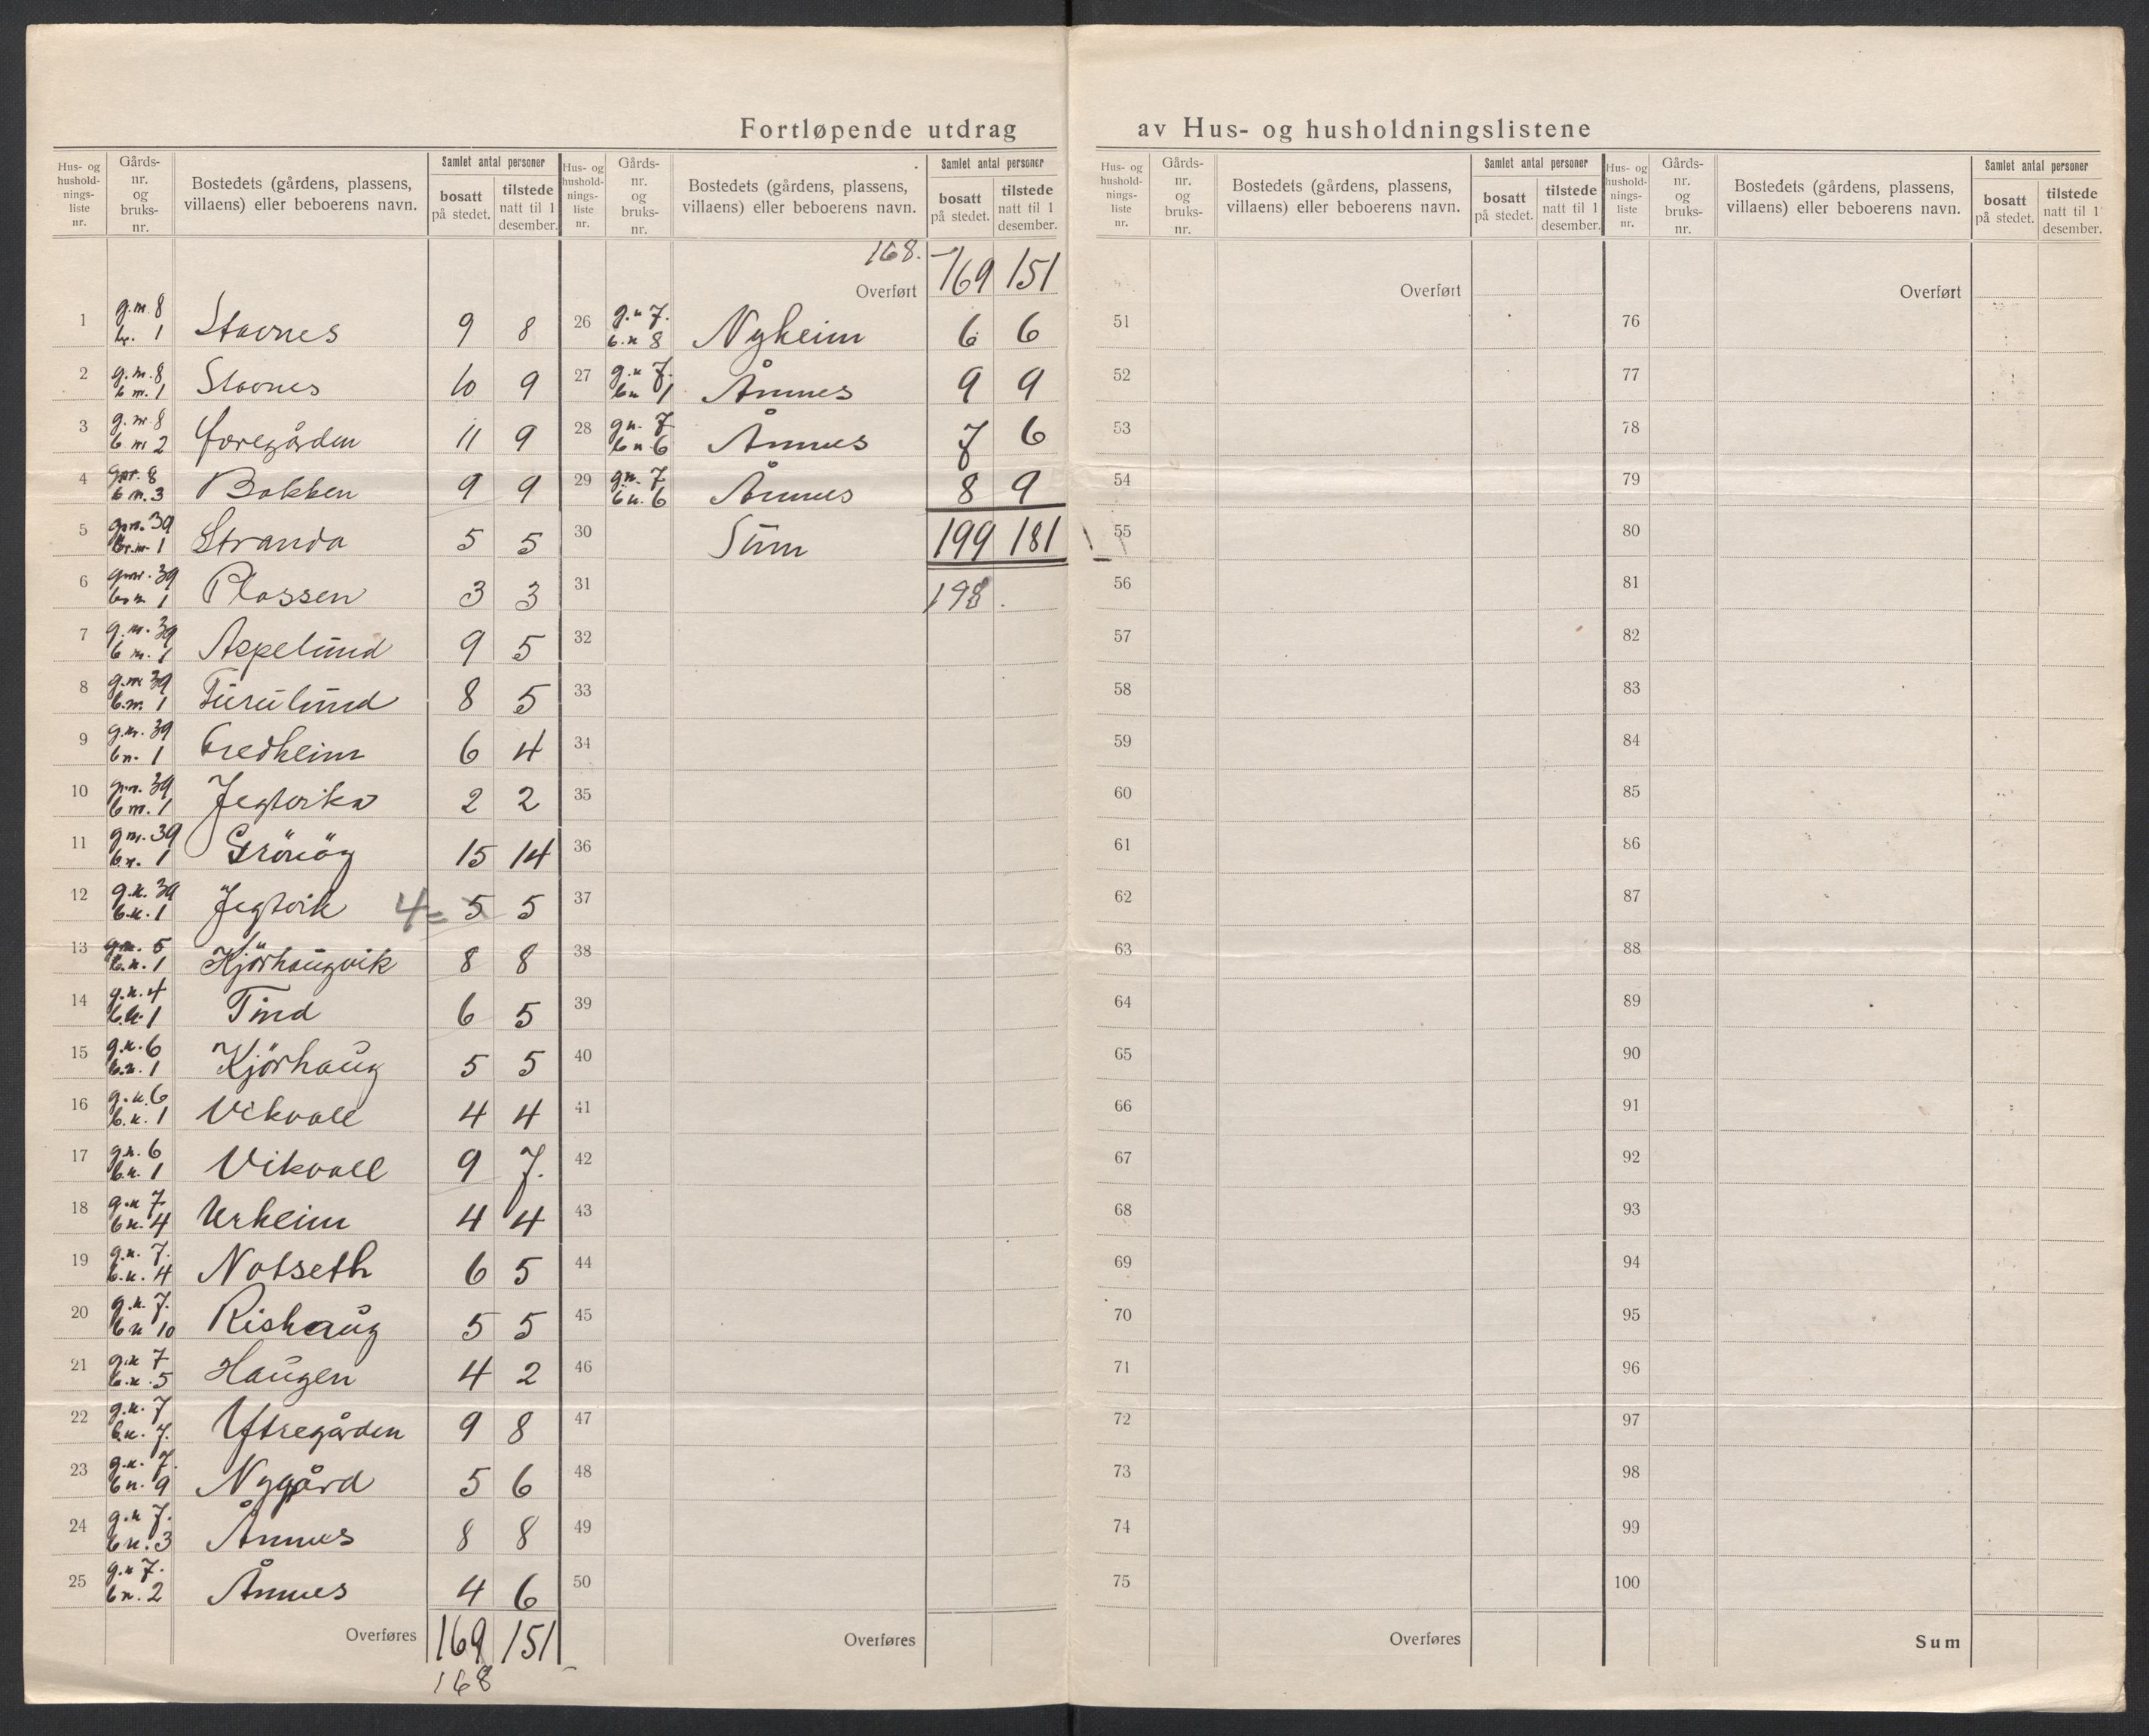 Fortløpende utdrag av Hus- og husholdningslistene
Hus- og husholdnings-liste nr. | Gårds-nr. og bruks-nr. | Bostedets (gårdens, plassens, villaens) eller beboerens navn. | Samlet antal personer | bosatt på stedet. | tilstede natt til 1 desember.
1 | g.n. 8 b.n. 1 | Stavnes | 9 | 8
2 | g.n. 8 b.n. 1 | Stavnes | 10 | 9
3 | g.n. 8 b.n. 2 | Foregården | 11 | 9
4 | g.n. 8 b.n. 3 | Bakken | 9 | 9
5 | g.n. 39 b.n. 1 | Stranda | 5 | 5
6 | g.n. 39 b.n. 1 | Plassen | 3 | 3
7 | g.n. 39 b.n. 1 | Aspelund | 9 | 5
8 | g.n. 39 b.n. 1 | Furulund | 8 | 5
9 | g.n. 39 b.n. 1 | Fredheim | 6 | 4
10 | g.n. 39 b.n. 1 | Jegtvika | 2 | 2
11 | g.n. 39 b.n. 1 | Grönöy | 15 | 14
12 | g.n. 39 b.n. 1 | Jegtvik | 4= 5 | 5
13 | g.n. 5 b.n. 1 | Kjörhaugvik | 8 | 8
14 | g.n. 4 b.n. 1 | Tind | 6 | 5
15 | g.n. 6 b.n. 1 | Kjörhaug | 5 | 5
16 | g.n. 6 b.n. 1 | Vikvall | 4 | 4
17 | g.n. 6 b.n. 1 | Vikvall | 9 | 7.
18 | g.n. 7 b.n. 4 | Urheim | 4 | 4
19 | g.n. 7. b.n. 4 | Notseth | 6 | 5
20 | g.n. 7. b.n. 10 | Rishaug | 5 | 5
21 | g.n. 7 b.n. 5 | Haugen | 4 | 2
22 | g.n. 7 b.n. 7. | Yttregården | 9 | 8
23 | g.n. 7. b.n. 9 | Nygård | 5 | 6
24 | g.n. 7. b.n. 3 | Ånnes | 8 | 8
25 | g.n. 7. b.n. 2 | Ånnes | 4 | 6
Overføres | 169 | 151
168
Hus- og husholdnings-liste nr. | Gårds-nr. og bruks-nr. | Bostedets (gårdens, plassens, villaens) eller beboerens navn. | Samlet antal personer | bosatt på stedet. | tilstede natt til 1 desember.
168.
Overført | 169 | 151
26 | g.n. 7. b.n. 8 | Nyheim | 6 | 6
27 | g.n. 7. b.n. 1 | Ånnes | 9 | 9
28 | g.n. 7 b.n. 6 | Ånnes | 7 | 6
29 | g.n. 7 b.n. 6 | Ånnes | 8 | 9
30 | Sum | 199 | 181
31 | 198.
32
33
34
35
36
37
38
39
40
41
42
43
44
45
46
47
48
49
50
Overføres
Hus- og husholdnings-liste nr. | Gårds-nr. og bruks-nr. | Bostedets (gårdens, plassens, villaens) eller beboerens navn. | Samlet antal personer | bosatt på stedet. | tilstede natt til 1 desember.
Overført
51
52
53
54
55
56
57
58
59
60
61
62
63
64
65
66
67
68
69
70
71
72
73
74
75
Overføres
Hus- og husholdnings-liste nr. | Gårds-nr. og bruks-nr. | Bostedets (gårdens, plassens, villaens) eller beboerens navn. | Samlet antal personer | bosatt på stedet. | tilstede natt til 1 desember.
Overført
76
77
78
79
80
81
82
83
84
85
86
87
88
89
90
91
92
93
94
95
96
97
98
99
100
Sum